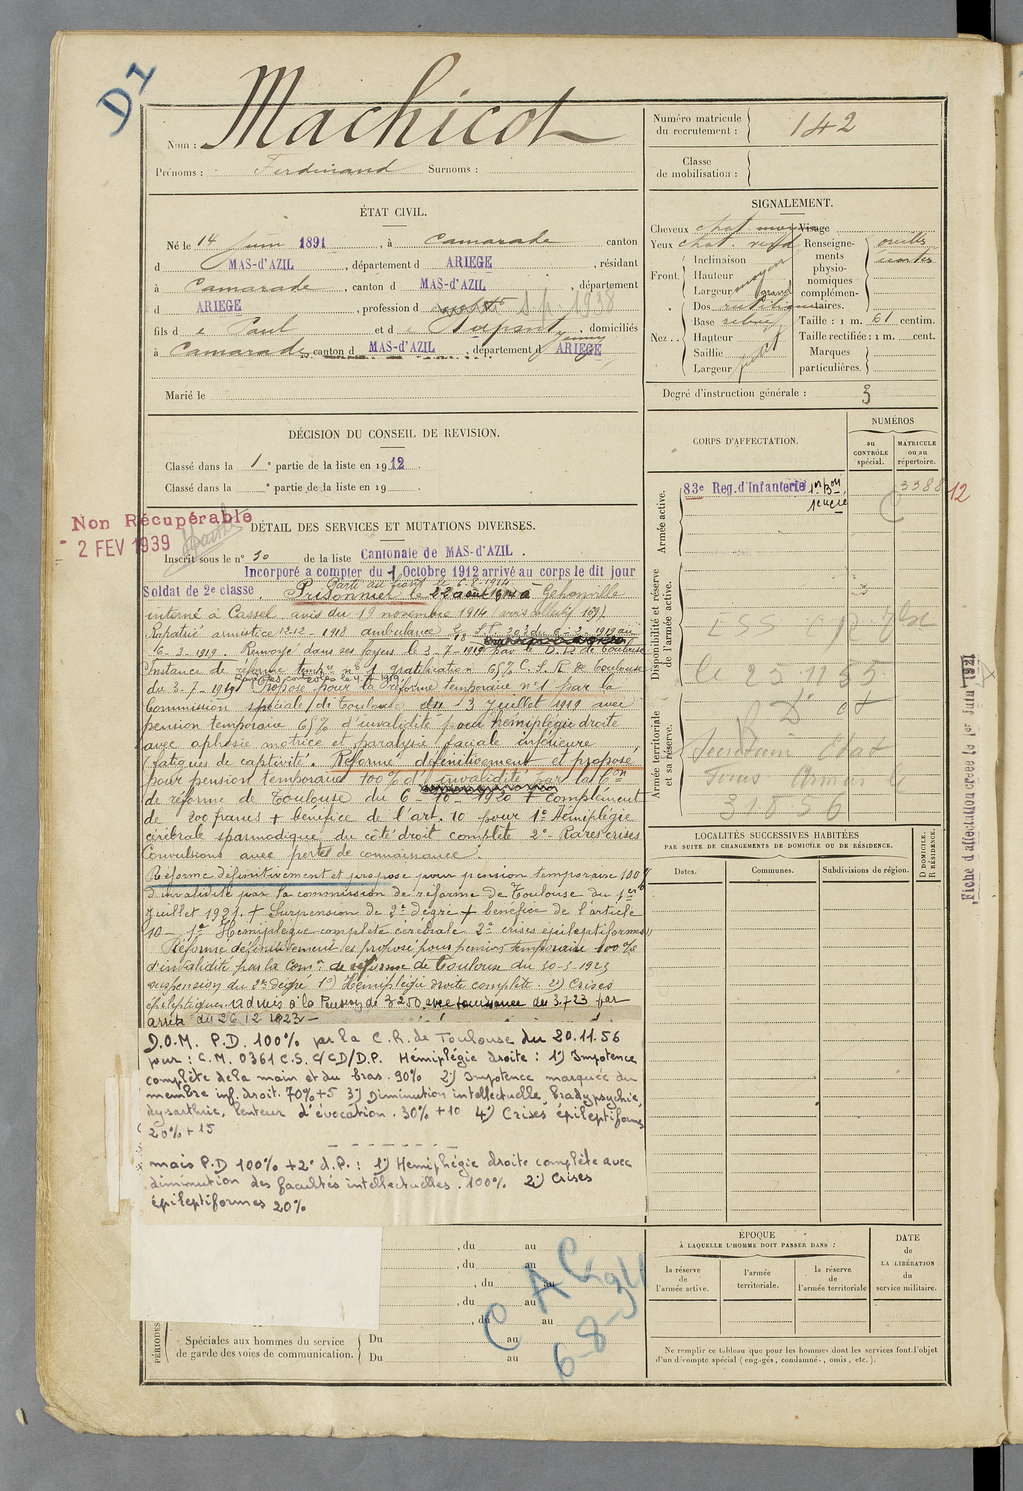 D1
Nom : Machicot
Prénoms : Ferdinand Surnoms :
Numéro matricule du recrutement : 142
Classe de mobilisation :
ÉTAT CIVIL.
Né le 14 Juin 1891, à Camarade canton
d MAS-d'AZIL, département d ARIEGE, résidant
à Camarade, canton d MAS-d'AZIL, département
d ARIEGE, profession d s.p. 1938
fils de Paul et de Jenny, domiciliés
à Camarade, canton d MAS-d'AZIL, département d ARIEGE
Marié le
SIGNALEMENT.
Cheveux chat. Visage
Yeux chat. Renseignements physionomiques complémentaires.
Front Inclinaison
Hauteur moyen
Largeur grand
Nez Dos rectiligne
Base
Hauteur
Saillie
Largeur petit
Taille : 1 m. 61 centim.
Taille rectifiée : 1 m. cent.
Marques particulières.
Degré d'instruction générale : 3
DÉCISION DU CONSEIL DE REVISION.
Classé dans la 1e partie de la liste en 1912.
Classé dans la e partie de la liste en 19
CORPS D'AFFECTATION.
NUMÉROS
au CONTRÔLE spécial.
MATRICULE ou au répertoire.
Armée active.
83e Reg. d'Infanterie
3388
12
Disponibilité et réserve de l'armée active.
le 25 11 55
Armée territoriale et sa réserve.
31856
Non Récupérable
2 FEV 1939
DÉTAIL DES SERVICES ET MUTATIONS DIVERSES.
Inscrit sous le n° 10 de la liste Cantonale de MAS-d'AZIL.
Incorporé à compter du 1 Octobre 1912 arrivé au corps le dit jour
Soldat de 2e classe
Prisonnier le 22 août 1914 à
interné à Cassel avis du 19 novembre 1914
Rapatrié armistice
16-3-1919. Renvoyé dans ses foyers le 3-7-1919 par le D. D. de Toulouse
Instance de réforme tempre n° 1 gratification 65% C. S. R. de Toulouse
du 3-7-1919 Proposé pour la réforme temporaire n° 1 par la
Commission spéciale de Toulouse du 3 Juillet 1919 avec
pension temporaire 65% d'invalidité pour hémiplégie droite
avec aphasie motrice et paralysie faciale inférieure
(fatigues de captivité). Réformé définitivement et proposé
pour pension temporaire 100% d'invalidité par la Con
de réforme de Toulouse du 6-10-1920 + complément
de 200 francs + bénéfice de l'art. 10 pour 1° Hémiplégie
cérébrale spasmodique du côté droit complète 2° Rares crises
Convulsions avec pertes de connaissance.
Réformé définitivement et proposé pour pension temporaire 100%
d'invalidité par la commission de réforme de Toulouse du 1er
Juillet 1921. + Surpension de 2e degré + bénéfice de l'article
10 - 1° Hémiplégie complète cérébrale 2° crises épileptiformes
Réformé définitivement et proposé pour pension temporaire 100%
d'invalidité par la Comon de réforme de Toulouse du 30-5-1923
surpension du 2e degré 1°) Hémiplégie droite complète. 2°) Crises
épileptiques. admis à la Pension de 3250 avec jouissance du 3.7.23 par
arrêté du 26.12.1923 -
D.O.M. P.D. 100% par la C.R. de Toulouse du 20.11.56
pour : C.M. 0361 C.S. C/CD/D.P. Hémiplégie droite : 1°) Impotence
complète de la main et du bras. 90% 2°) Impotence marquée du
membre inf. droit. 70%+5 3°) Diminution intellectuelle, bradypsychie,
dysarthrie, lenteur d'évocation. 30% + 10 4°) Crises épileptiformes
20% + 15
mais P.D 100% + 2° d.P. : 1°) Hémiplégie droite complète avec
diminution des facultés intellectuelles. 100% 2°) Crises
épileptiformes 20%
LOCALITÉS SUCCESSIVES HABITÉES
PAR SUITE DE CHANGEMENTS DE DOMICILE OU DE RÉSIDENCE.
Dates. Communes. Subdivisions de région. D DOMICILE. R RÉSIDENCE.
Fiche d'affectation créée le 1er Juin 1931
ÉPOQUE
À LAQUELLE L'HOMME DOIT PASSER DANS :
la réserve de l'armée active.
l'armée territoriale.
la réserve de l'armée territoriale
DATE de LA LIBÉRATION du service militaire.
, du au
, du au
, du au
, du au
, du au
PÉRIODES
Spéciales aux hommes du service de garde des voies de communication.
Du au
Du au
6-8-34
Ne remplir ce tableau que pour les hommes dont les services font l'objet
d'un décompte spécial (engagés, condamnés, omis, etc.).